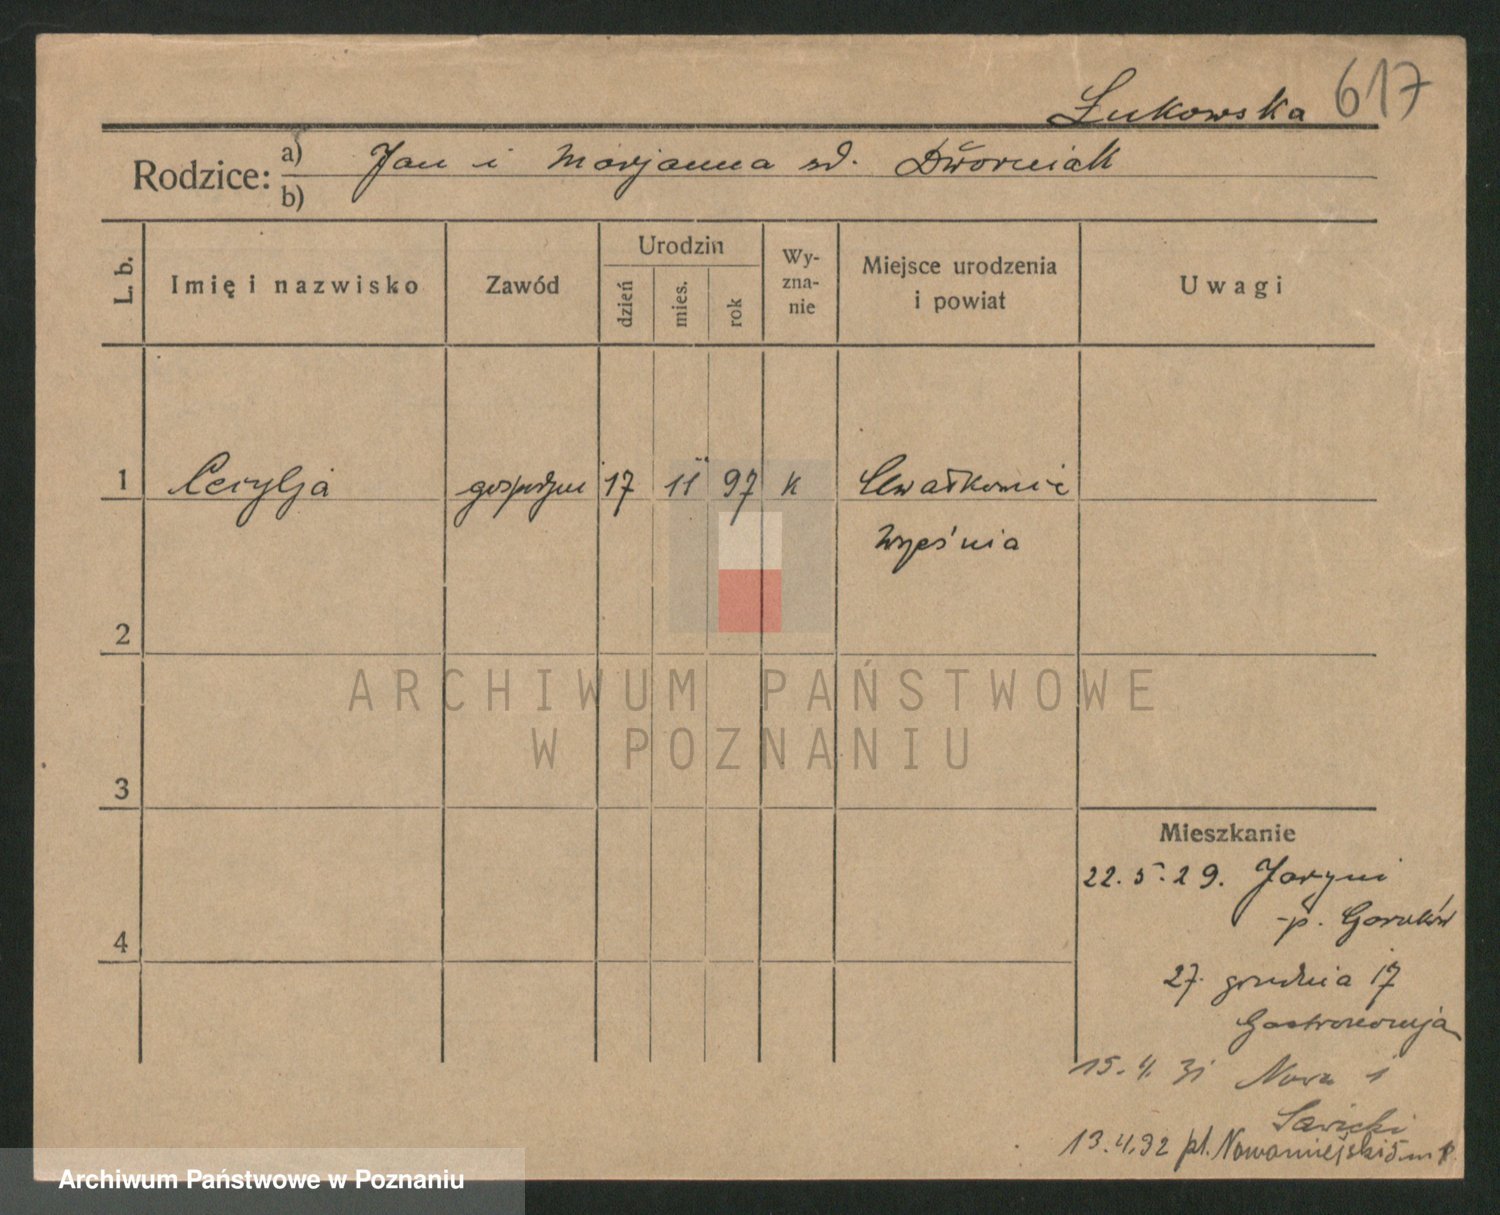 Łukowska 617
Rodzice: a) Jan i Marjanna zd. Dworniak
b)
L. b. Imię i nazwisko Zawód Urodzin dzień mies. rok Wyznanie Miejsce urodzenia i powiat Uwagi
1 Cecylja 17 11 97 k
Września
2
ARCHIWUM PAŃSTWOWE
W POZNANIU
3
Mieszkanie
22.5.29.
p.
4
27 grudnia 17
Gastronomja
15.4.31 Nowa 1
Sawicki
13.4.32 pl. Nowomiejski 5
Archiwum Państwowe w Poznaniu